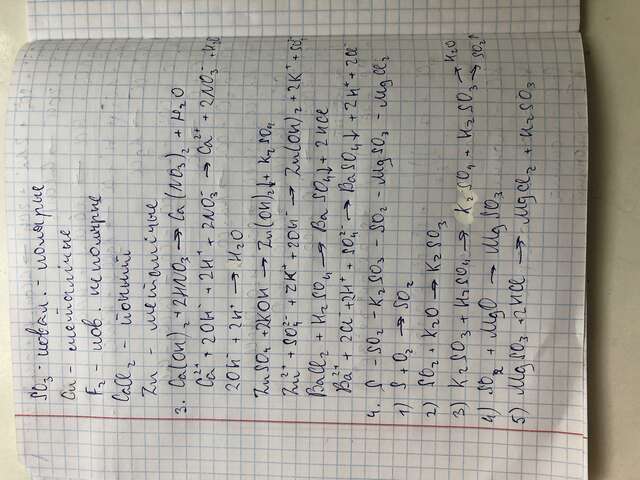 SO3 - ковал. - полярные
Cu - металічные
F2 - ков. неполярные
CaCl2 - ионный
Zn - металічные
3. Ca(OH)2 + 2HNO3 → Ca(NO3)2 + H2O
Ca2+ + 2OH- + 2H+ + 2NO3- → Ca2+ + 2NO3- + H2O
2OH + 2H+ → H2O
ZnSO4 + 2KOH → Zn(OH)2↓ + K2SO4
Zn2+ + SO42- + 2K+ + 2OH- → Zn(OH)2 + 2K+ + SO42-
BaCl2 + H2SO4 → BaSO4↓ + 2HCl
Ba2+ + 2Cl + 2H+ + SO42- → BaSO4↓ + 2H+ + 2Cl-
4. S - SO2 - K2SO3 - SO2 - MgSO3 - MgCl2
1) S + O2 → SO2
2) SO2 + K2O → K2SO3
3) K2SO3 + H2SO4 → K2SO4 + H2SO3 → H2O → SO2↑
4) SO2 + MgO → MgSO3
5) MgSO3 + 2HCl → MgCl2 + H2SO3